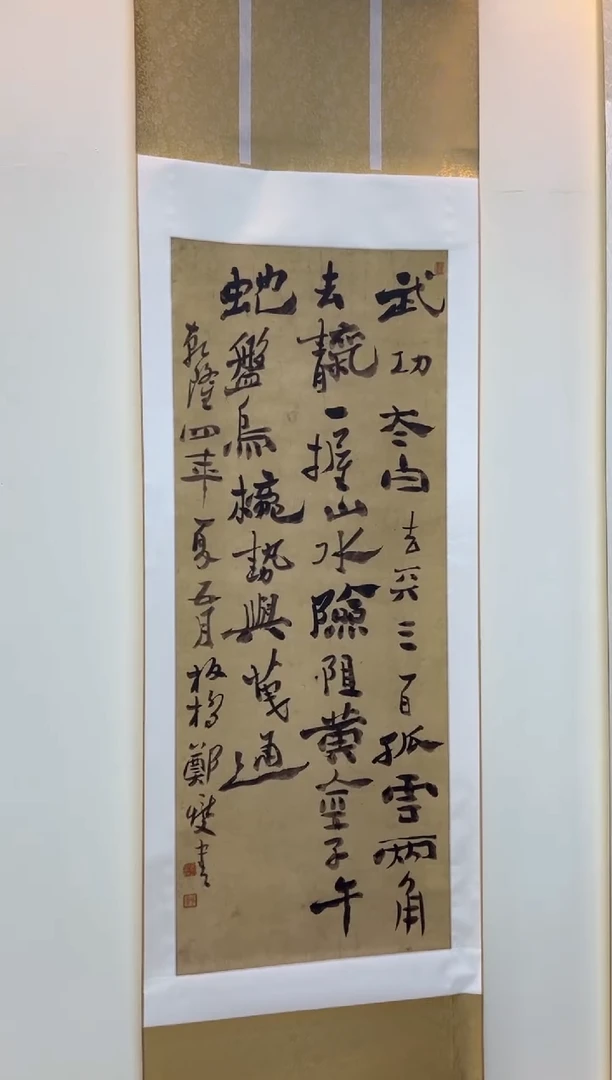 武功夳白去兲三百孤雲兩角
去靝一握山水險阻黃金子午
虵盤烏櫳勢與通
乾隆四年夏五月板橋鄭燮書